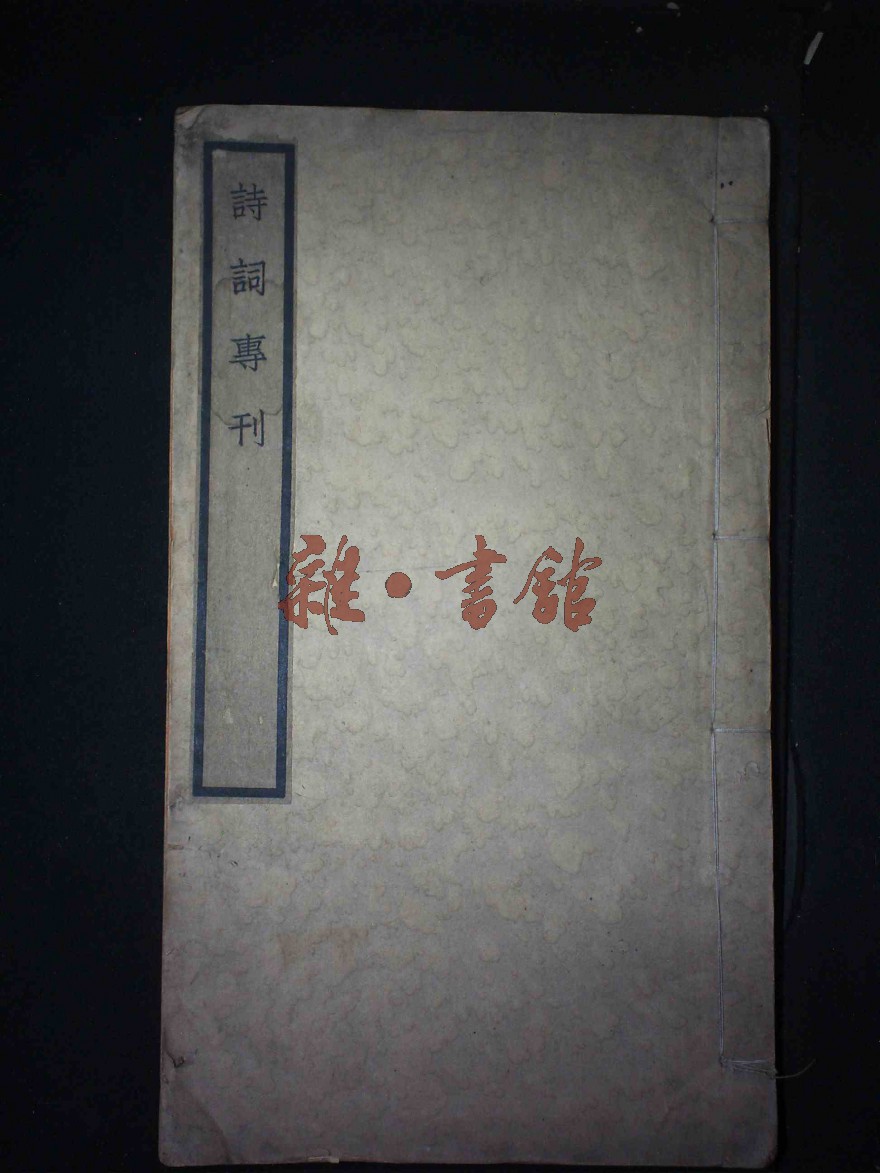 詩詞專刊
雜·書館